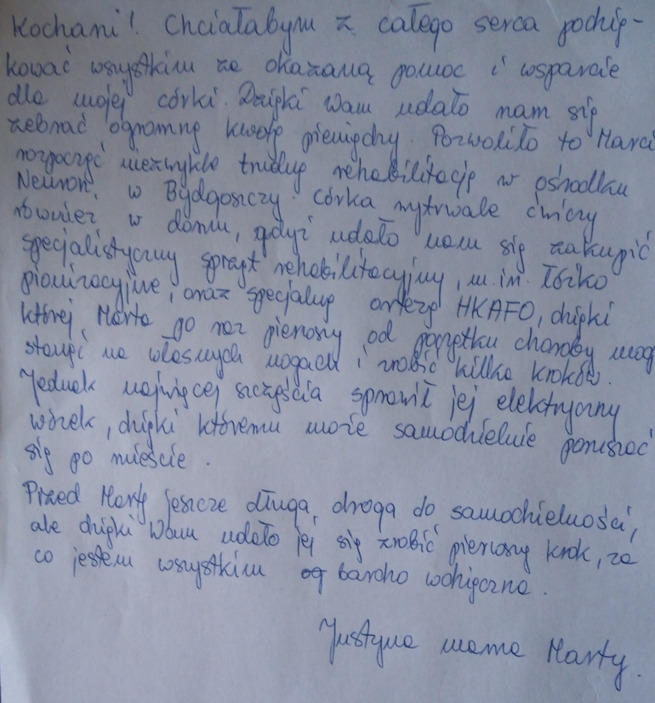 Kochani! Chciałabym z całego serca podzię-
kować wszystkim za okazaną pomoc i wsparcie
dla mojej córki. Dzięki Wam udało nam się
zebrać ogromną kwotę pieniędzy. Pozwoliło to Marci
rozpocząć niezwykle trudną rehabilitację w ośrodku
Neuron, w Bydgoszczy. Córka wytrwale ćwiczy
również w domu, gdyż udało nam się zakupić
specjalistyczny sprzęt rehabilitacyjny, m.in. łóżko
pionizacyjne, oraz specjalną ortezę HKAFO, dzięki
której Marta po raz pierwszy od początku choroby mog
stanąć na własnych nogach i zrobić kilka kroków.
Jednak najwięcej szczęścia sprawił jej elektryczny
wózek, dzięki któremu może samodzielnie poruszać
się po mieście.
Przed Martą jeszcze długa droga do samodzielności,
ale dzięki Wam udało jej się zrobić pierwszy krok, za
co jestem wszystkim bardzo wdzięczna.
Justyna mama Marty.